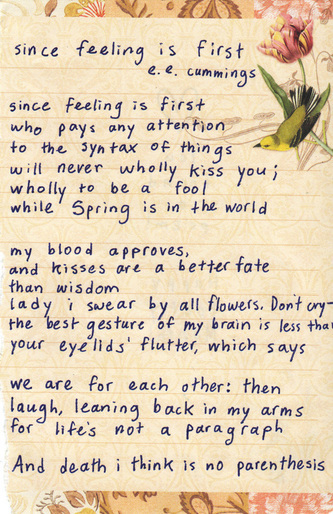 since feeling is first
e.e. cummings
since feeling is first
who pays any attention
to the syntax of things
will never wholly kiss you;
wholly to be a fool
while Spring is in the world
my blood approves,
and kisses are a better fate
than wisdom
lady i swear by all flowers. Don't cry-
the best gesture of my brain is less than
your eyelids' flutter, which says
we are for each other: then
laugh, leaning back in my arms
for life's not a paragraph
And death i think is no parenthesis